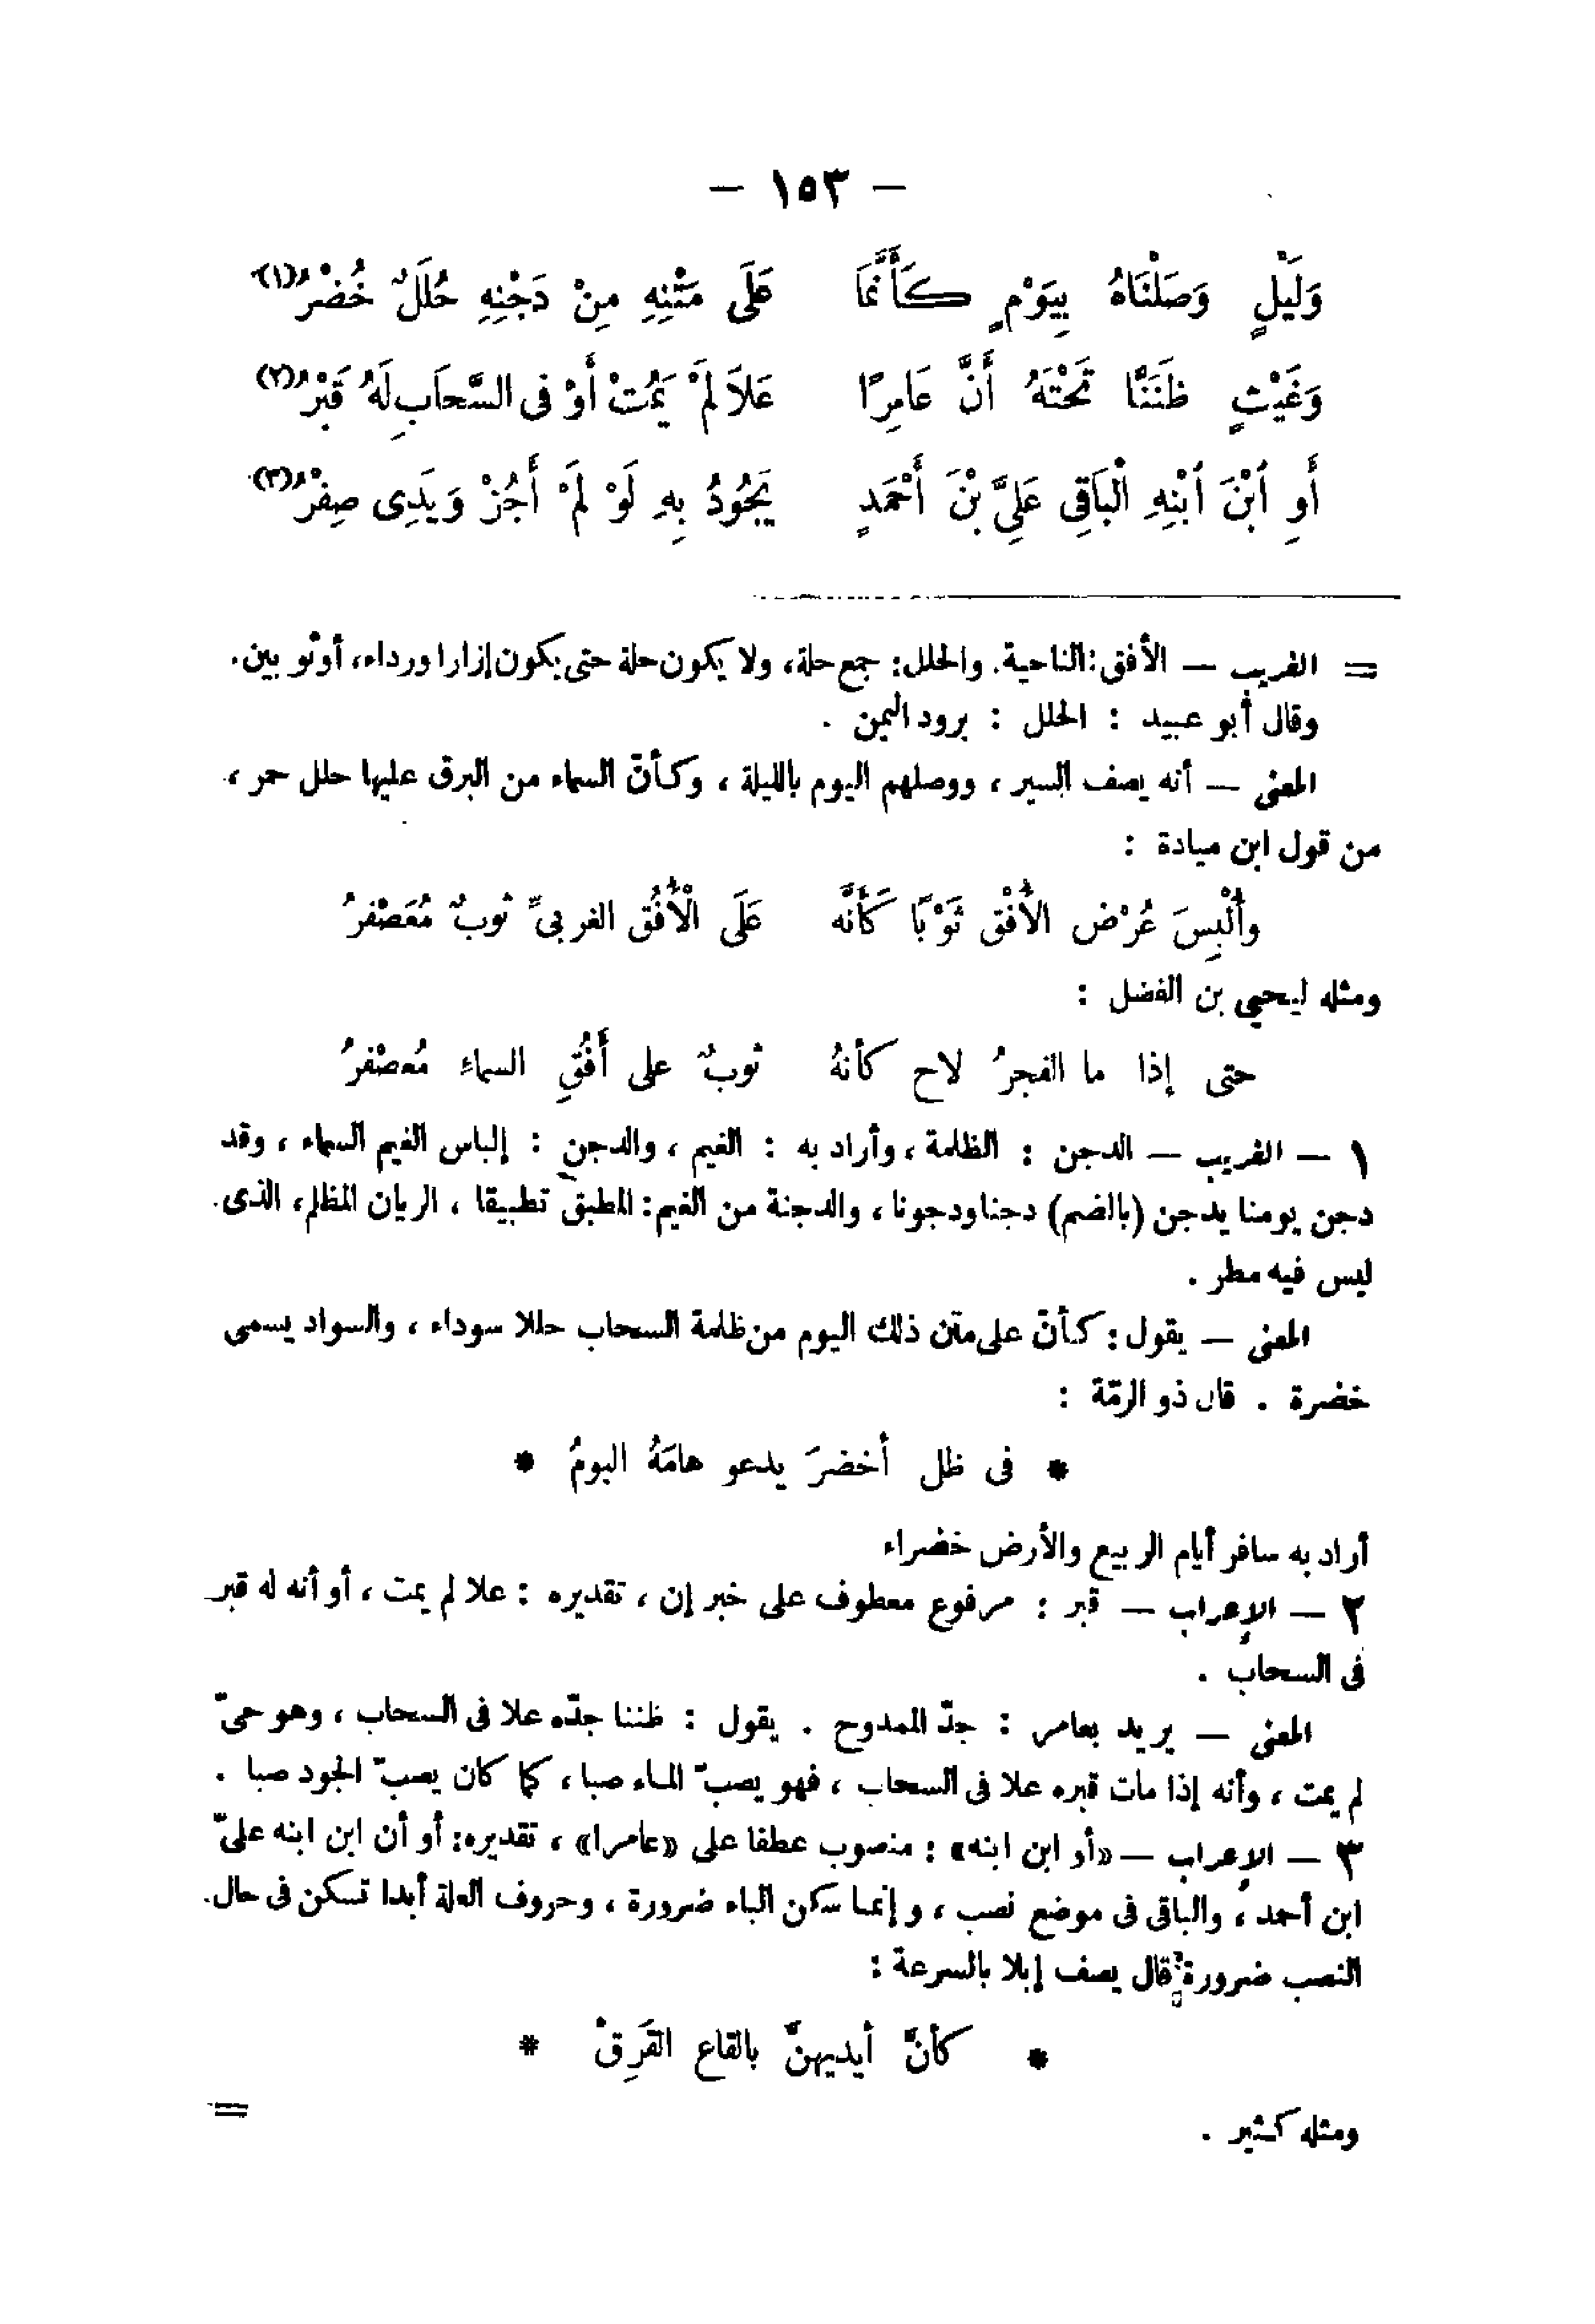 — ١٥٣ —
وَلَيْلٍ وَصَلْنَاهُ بِيَوْمٍ كَأَنَّمَا عَلَى مَتْنِهِ مِنْ دَجْنِهِ حُلَلٌ خُضْرُ(١)
وَغَيْثٍ ظَنَنَّا تَحْتَهُ أَنَّ عَامِرًا عَلاَ لَمْ يَمُتْ أَوْ فِى السَّحاَبِ لَهُ قَبْرُ(٢)
أَوِ اُبْنَ اُبْنِهِ الْبَاقِى عَلِىَّ بْنَ أَحْمَدٍ يَجُودُ بِهِ لَوْ لَمْ أَجُزْ وَيَدِى صِفْرُ(٣)
= الغريب — الأفق: الناحية. والحلل: جمع حلة، ولا يكون حلة حتى يكون إزارا ورداء، أو ثو بين.
وقال أبو عبيد : الحلل : برود اليمن .
المعنى — أنه يصف السير ، ووصلهم اليوم بالليلة ، وكأنّ السماء من البرق عليها حلل حمر ،
من قول ابن ميادة :
وأُلْبِسَ عُرْض الأُفْق ثَوْبًا كَأَنَّه عَلَى الْأُفُق الغربىّ ثوبٌ مُعَصْفرُ
ومثله ليحيى بن الفضل :
حتى إذا ما الفجرُ لاح كأنهُ ثوبٌ على أُفُقِ السماءِ مُعصْفرُ
١ — الغريب — الدجن : الظلمة ، وأراد به : الغيم ، والدجن : إلباس الغيم السماء ، وقد
دجن يومنا يدجن (بالضم) دجنا ودجونا ، والدجنة من الغيم : المطبق تطبيقا ، الريان المظلم، الذى
ليس فيه مطر .
المعنى — يقول : كأنّ على متن ذلك اليوم من ظلمة السحاب حللا سوداء ، والسواد يسمى
خضرة . قال ذو الرمّة :
* فى ظل أخضرَ يدعو هامَهُ البومُ *
أراد به سافر أيام الربيع والأرض خضراء
٢ — الإعراب — قبر : مرفوع معطوف على خبر إن ، تقديره : علا لم يمت ، أو أنه له قبر
فى السحاب .
المعنى — يريد بعامر : جدّ الممدوح . يقول : ظننا جدّه علا فى السحاب ، وهو حىّ
لم يمت ، وأنه إذا مات قبره علا فى السحاب ، فهو يصبّ الماء صبا ، كما كان يصبّ الجود صبا .
٣ — الإعراب — «أو ابن ابنه» : منصوب عطفا على «عامرا» ، تقديره: أو أن ابن ابنه علىّ
ابن أحمد ، والباقى فى موضع نصب ، وإنما سكن الياء ضرورة ، وحروف العلة أبدا تسكن فى حال
النصب ضرورة قال يصف إبلا بالسرعة :
* كأنّ أيديهنّ بالقاع القَرِقْ *
ومثله كثير .
=